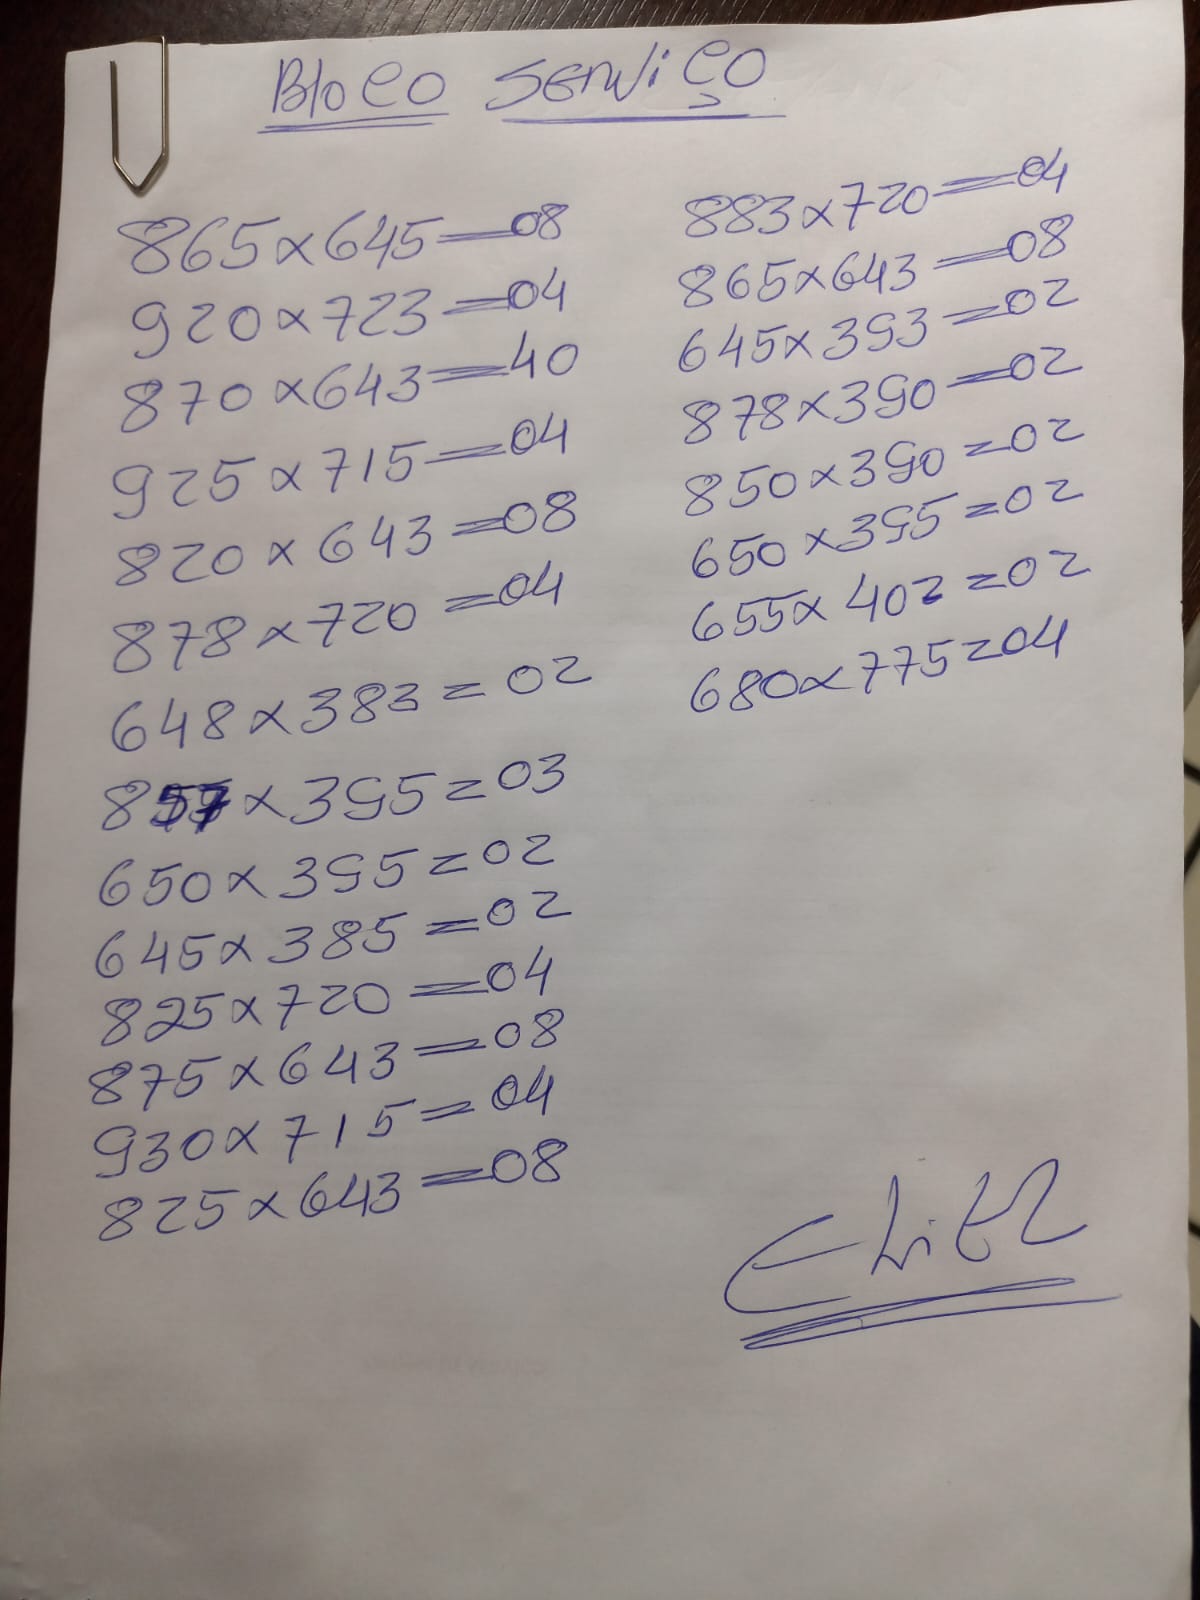 Bloco Serviço
865x645=08
920x723=04
870x643=40
925x715=04
820x643=08
878x720=04
648x383=02
857x395=03
650x395=02
645x385=02
825x720=04
875x643=08
930x715=04
825x643=08
883x720=04
865x643=08
645x393=02
878x390=02
850x390=02
650x395=02
655x402=02
680x775=04